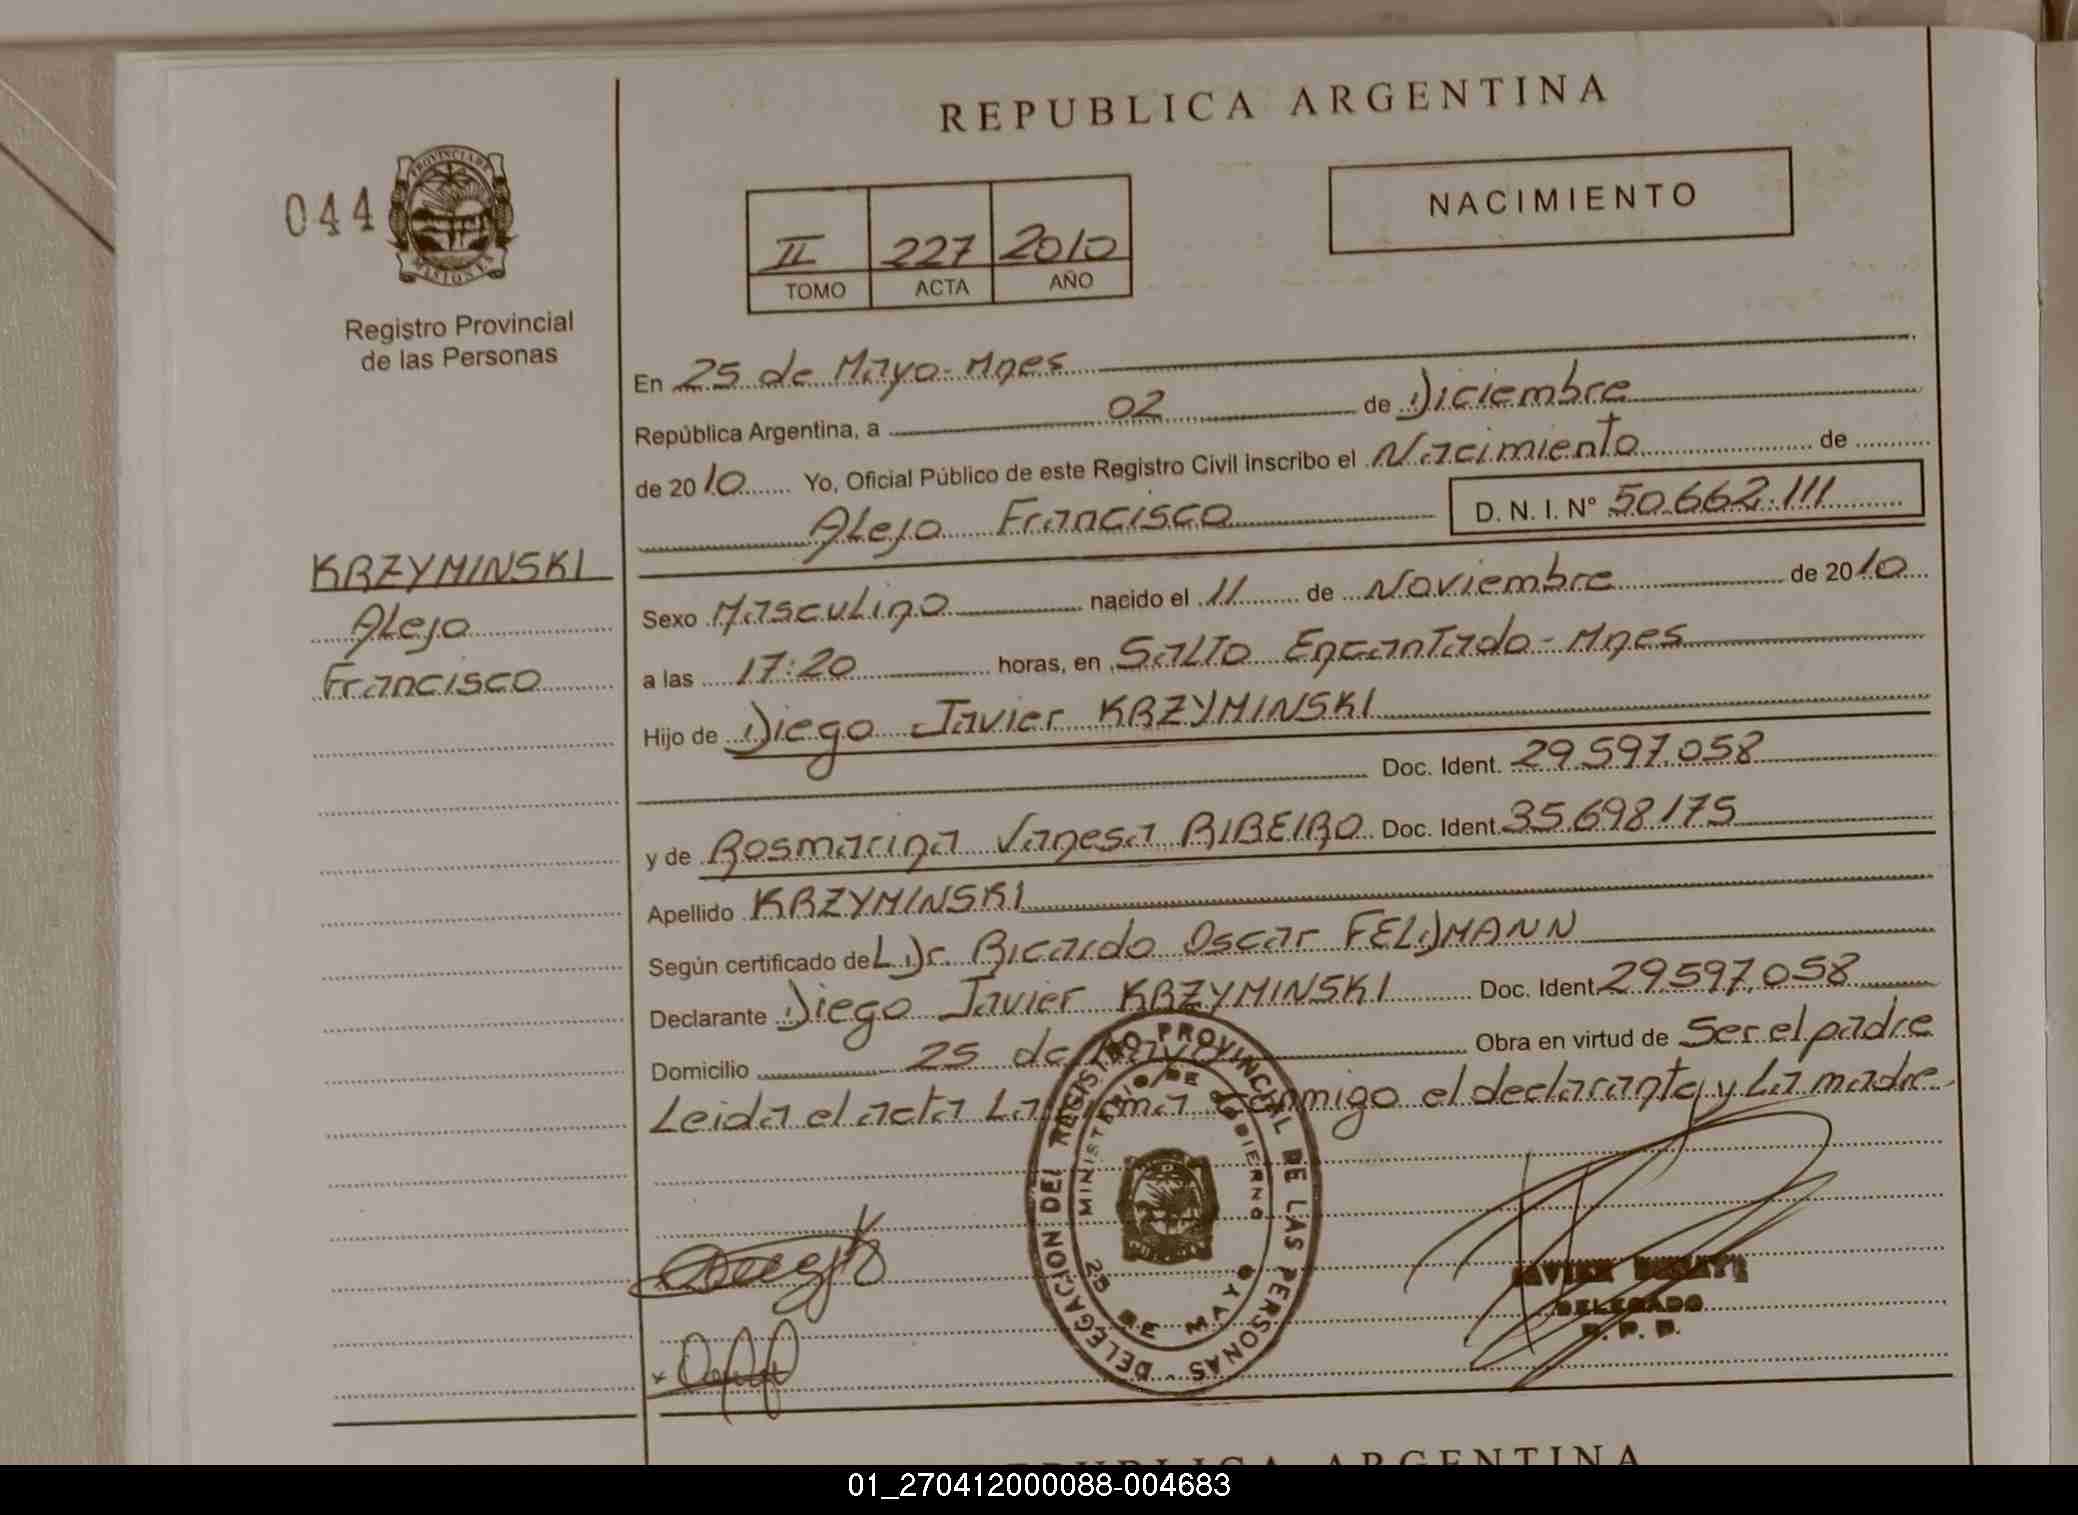 REPUBLICA ARGENTINA
044
PROVINCIA DE
MISIONES
NACIMIENTO
II 227 2010
TOMO ACTA AÑO
Registro Provincial
de las Personas
En 25 de Mayo-Mnes
República Argentina, a 02 de Diciembre
de 2010 Yo, Oficial Público de este Registro Civil inscribo el Nacimiento de
Alejo Francisco D. N. I. Nº 50.662.111
KRZYMINSKI
Alejo
Francisco
Sexo Masculino nacido el 11 de Noviembre de 2010
a las 17:20 horas, en Salto Encantado-Mnes
Hijo de Diego Javier KRZYMINSKI
Doc. Ident. 29.597.058
y de Rosmarina Vanesa RIBEIRO Doc. Ident. 35.698.175
Apellido KRZYMINSKI
Según certificado del Dr. Ricardo Oscar FELDMANN
Declarante Diego Javier KRZYMINSKI Doc. Ident. 29.597.058
Domicilio 25 de Mayo Obra en virtud de Ser el padre
Leida el acta La firma conmigo el declarante y La madre
DELEGACION DEL REGISTRO PROVINCIAL DE LAS PERSONAS
MINISTERIO DE GOBIERNO
25 DE MAYO
JAVIER
DELEGADO
R. P. P.
REPUBLICA ARGENTINA
01_270412000088-004683